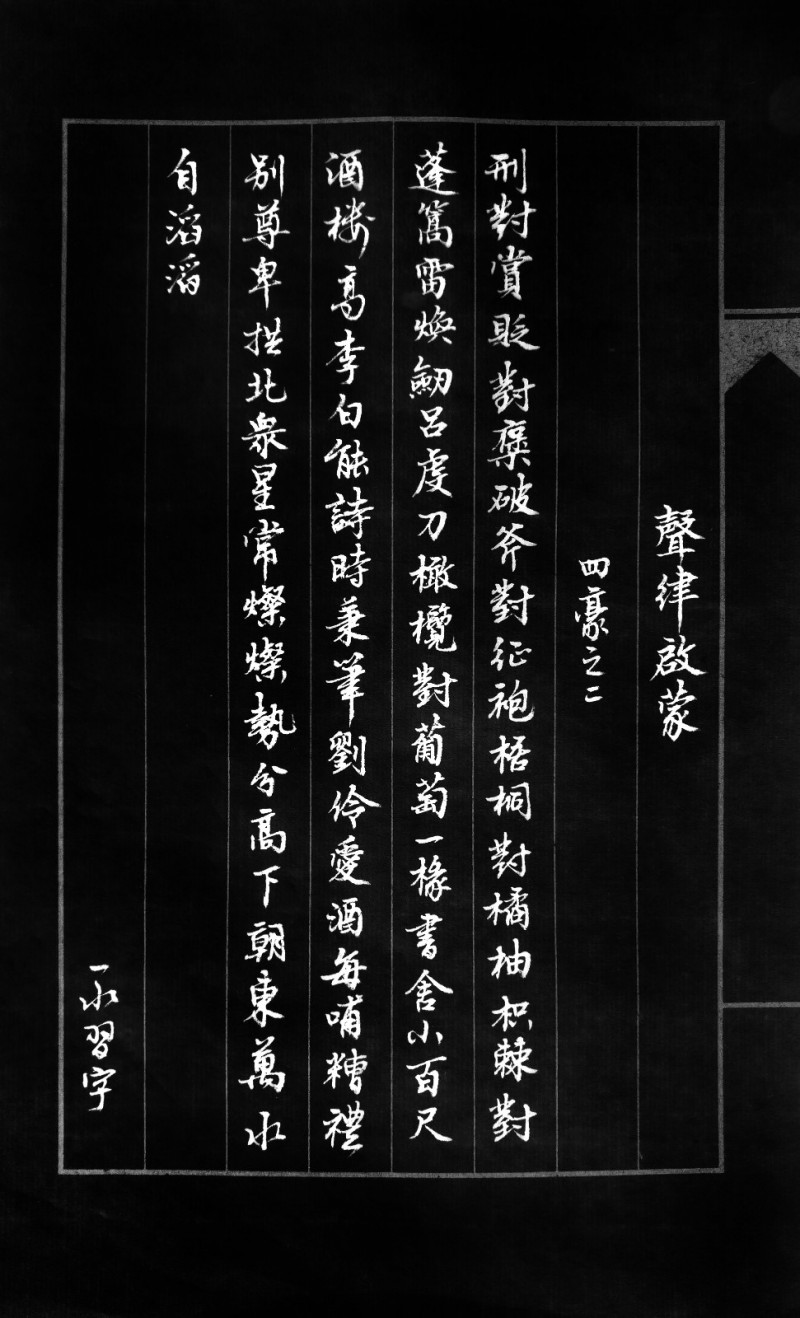 聲律啟蒙
四豪之二
刑對賞貶對褒破斧對征袍梧桐對橘柚枳棘對
蓬蒿雷煥劒呂虔刀橄欖對葡萄一椽書舍小百尺
酒楼高李白能詩時秉筆劉伶愛酒每哺糟禮
别尊卑拱北衆星常燦燦勢分高下朝東萬水
自滔滔
一水習字